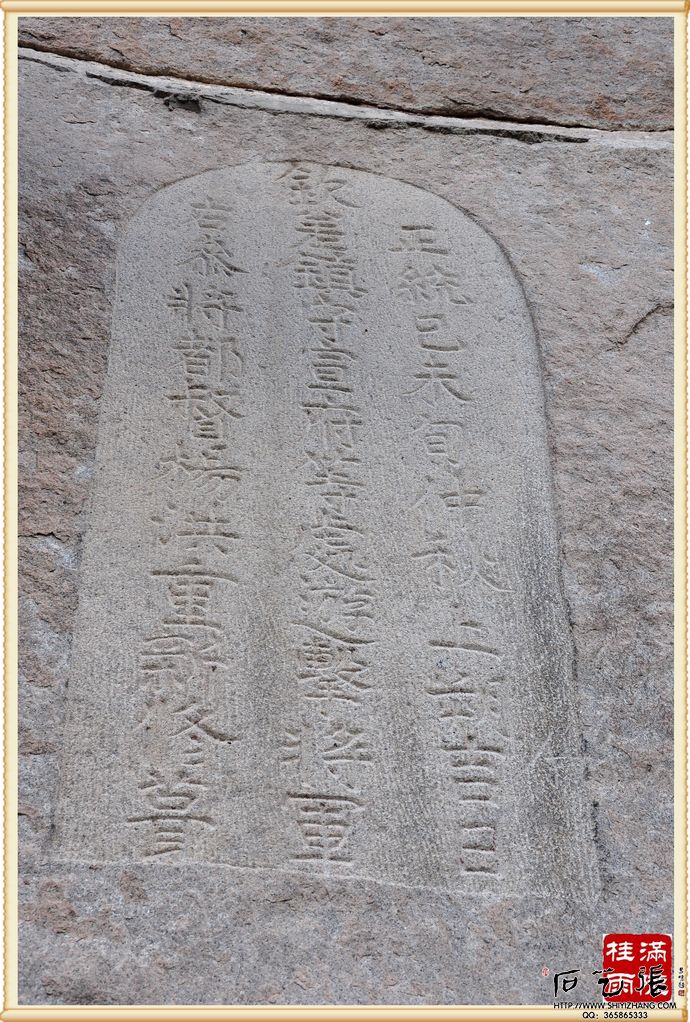 正統己未仲秋吉日
欽差鎮守宣府等處游擊將軍
右叅將都督楊洪重新修葺
石艺張
HTTP://WWW.SHIYIZHANG.COM
QQ: 365865333